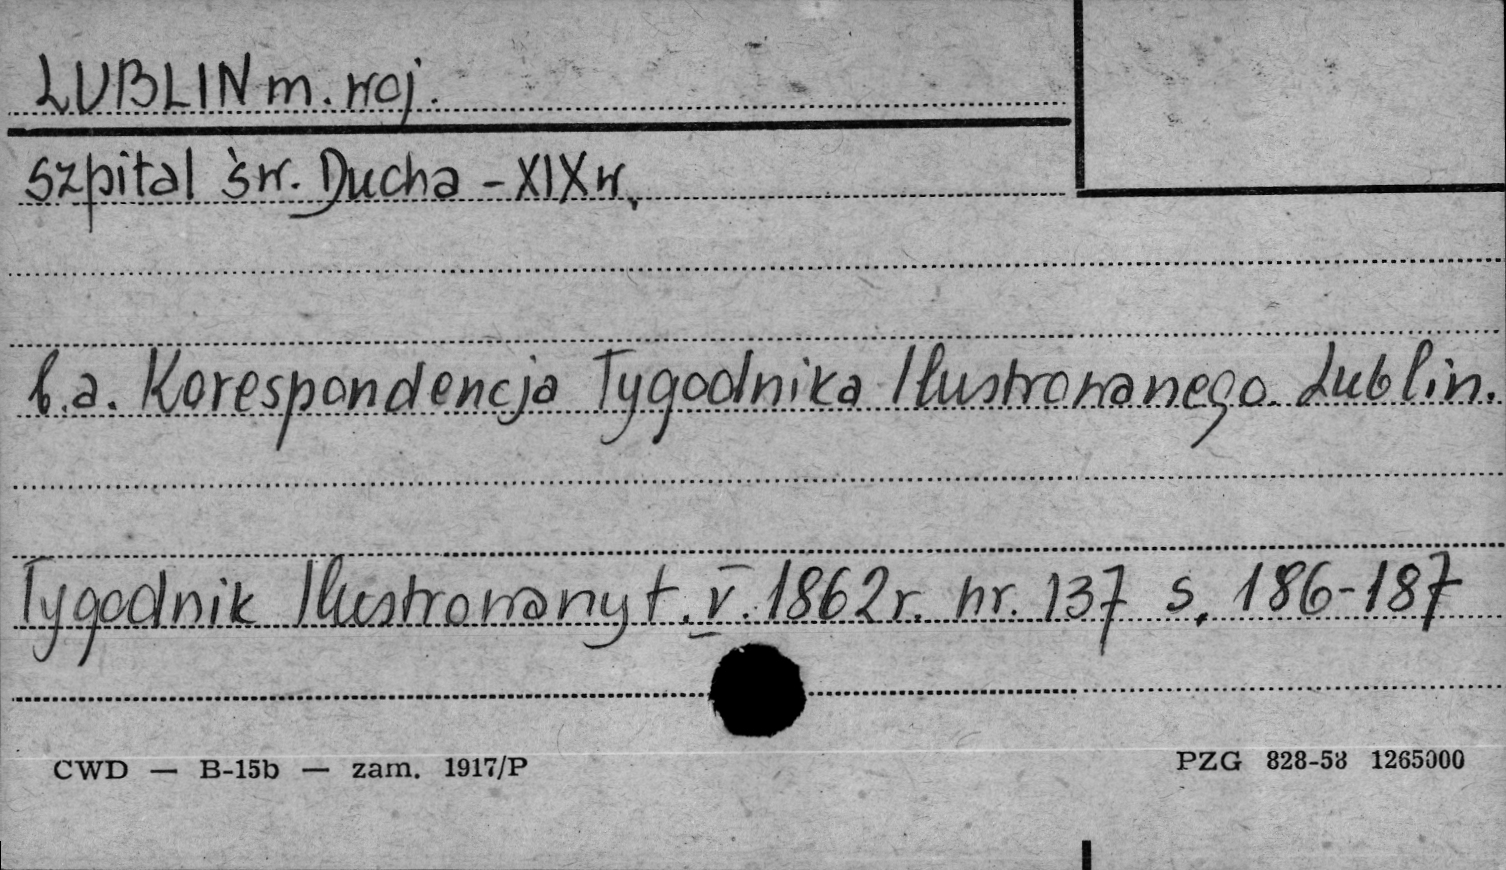 LUBLIN m. woj.
szpital św. Ducha - XIX w.
b.a. Korespondencja Tygodnika Ilustrowanego. Lublin.
Tygodnik Ilustrowany t. V. 1862 r. nr. 137 s. 186-187
CWD — B-15b — zam. 1917/P
PZG 828-58 1265000